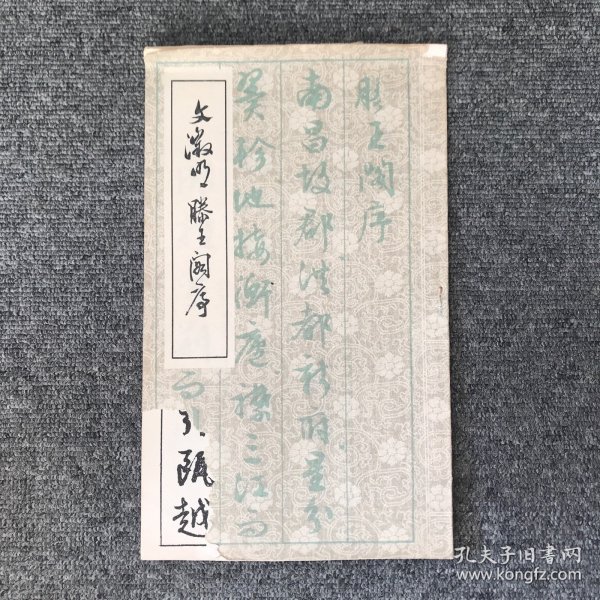 滕王阁序
南昌故郡洪都新府星分
翼轸地接衡庐襟三江而
文徵明滕王阁序
而
引瓯越
孔夫子旧书网
www.kongfz.com